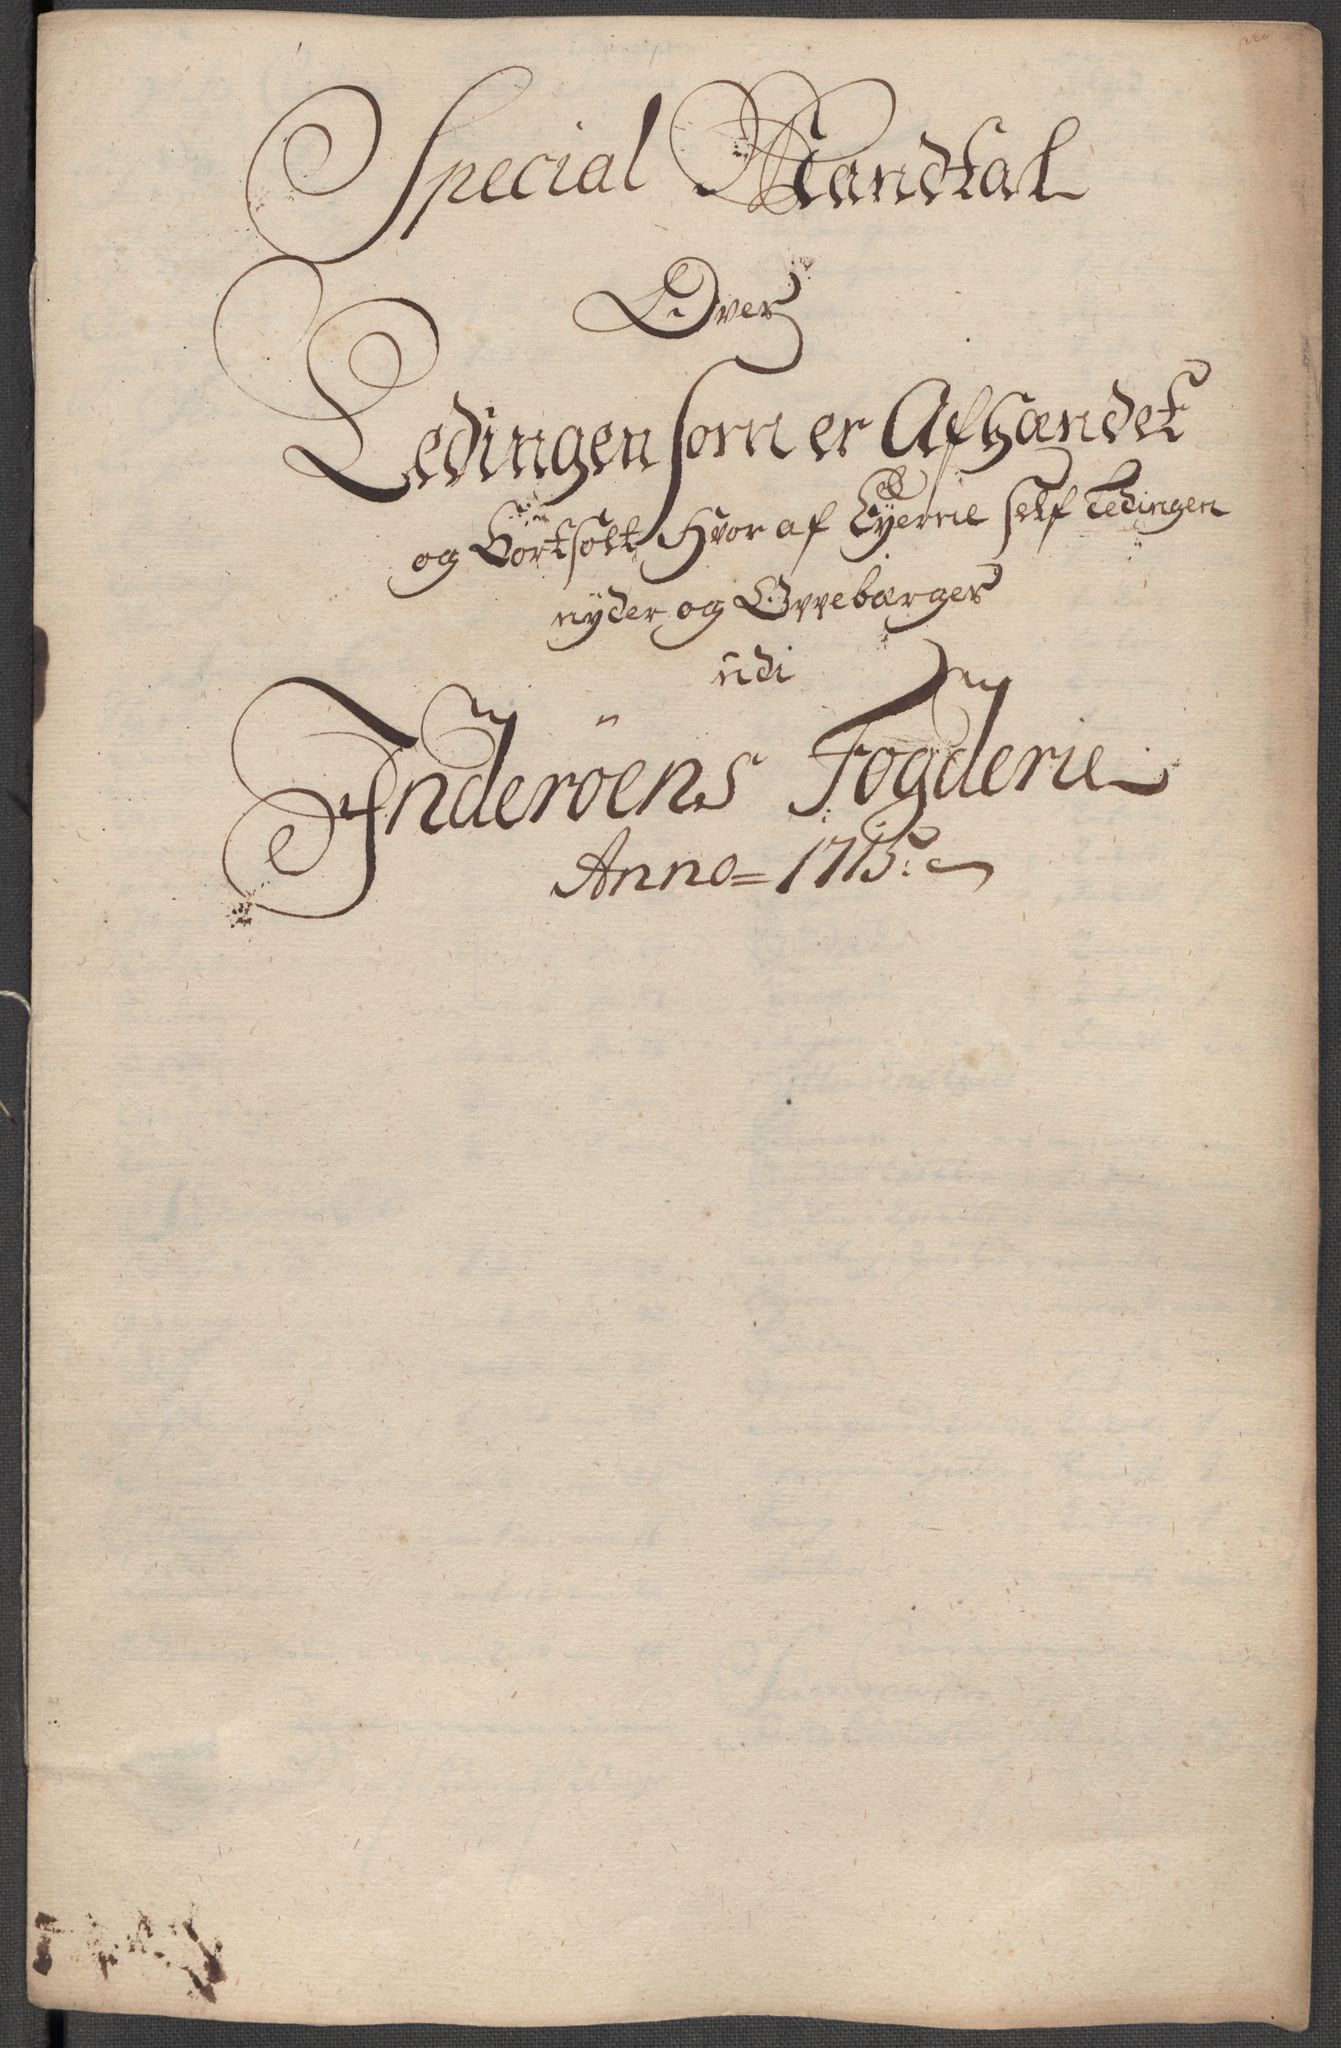 Special Mandtal
Over
Ledingen som er Afhændet
og Bortsolt Hvor af Eyerne self Ledingen
nyder og Oppebærger
udi
Inderöens Fogderie
Anno = 1715.